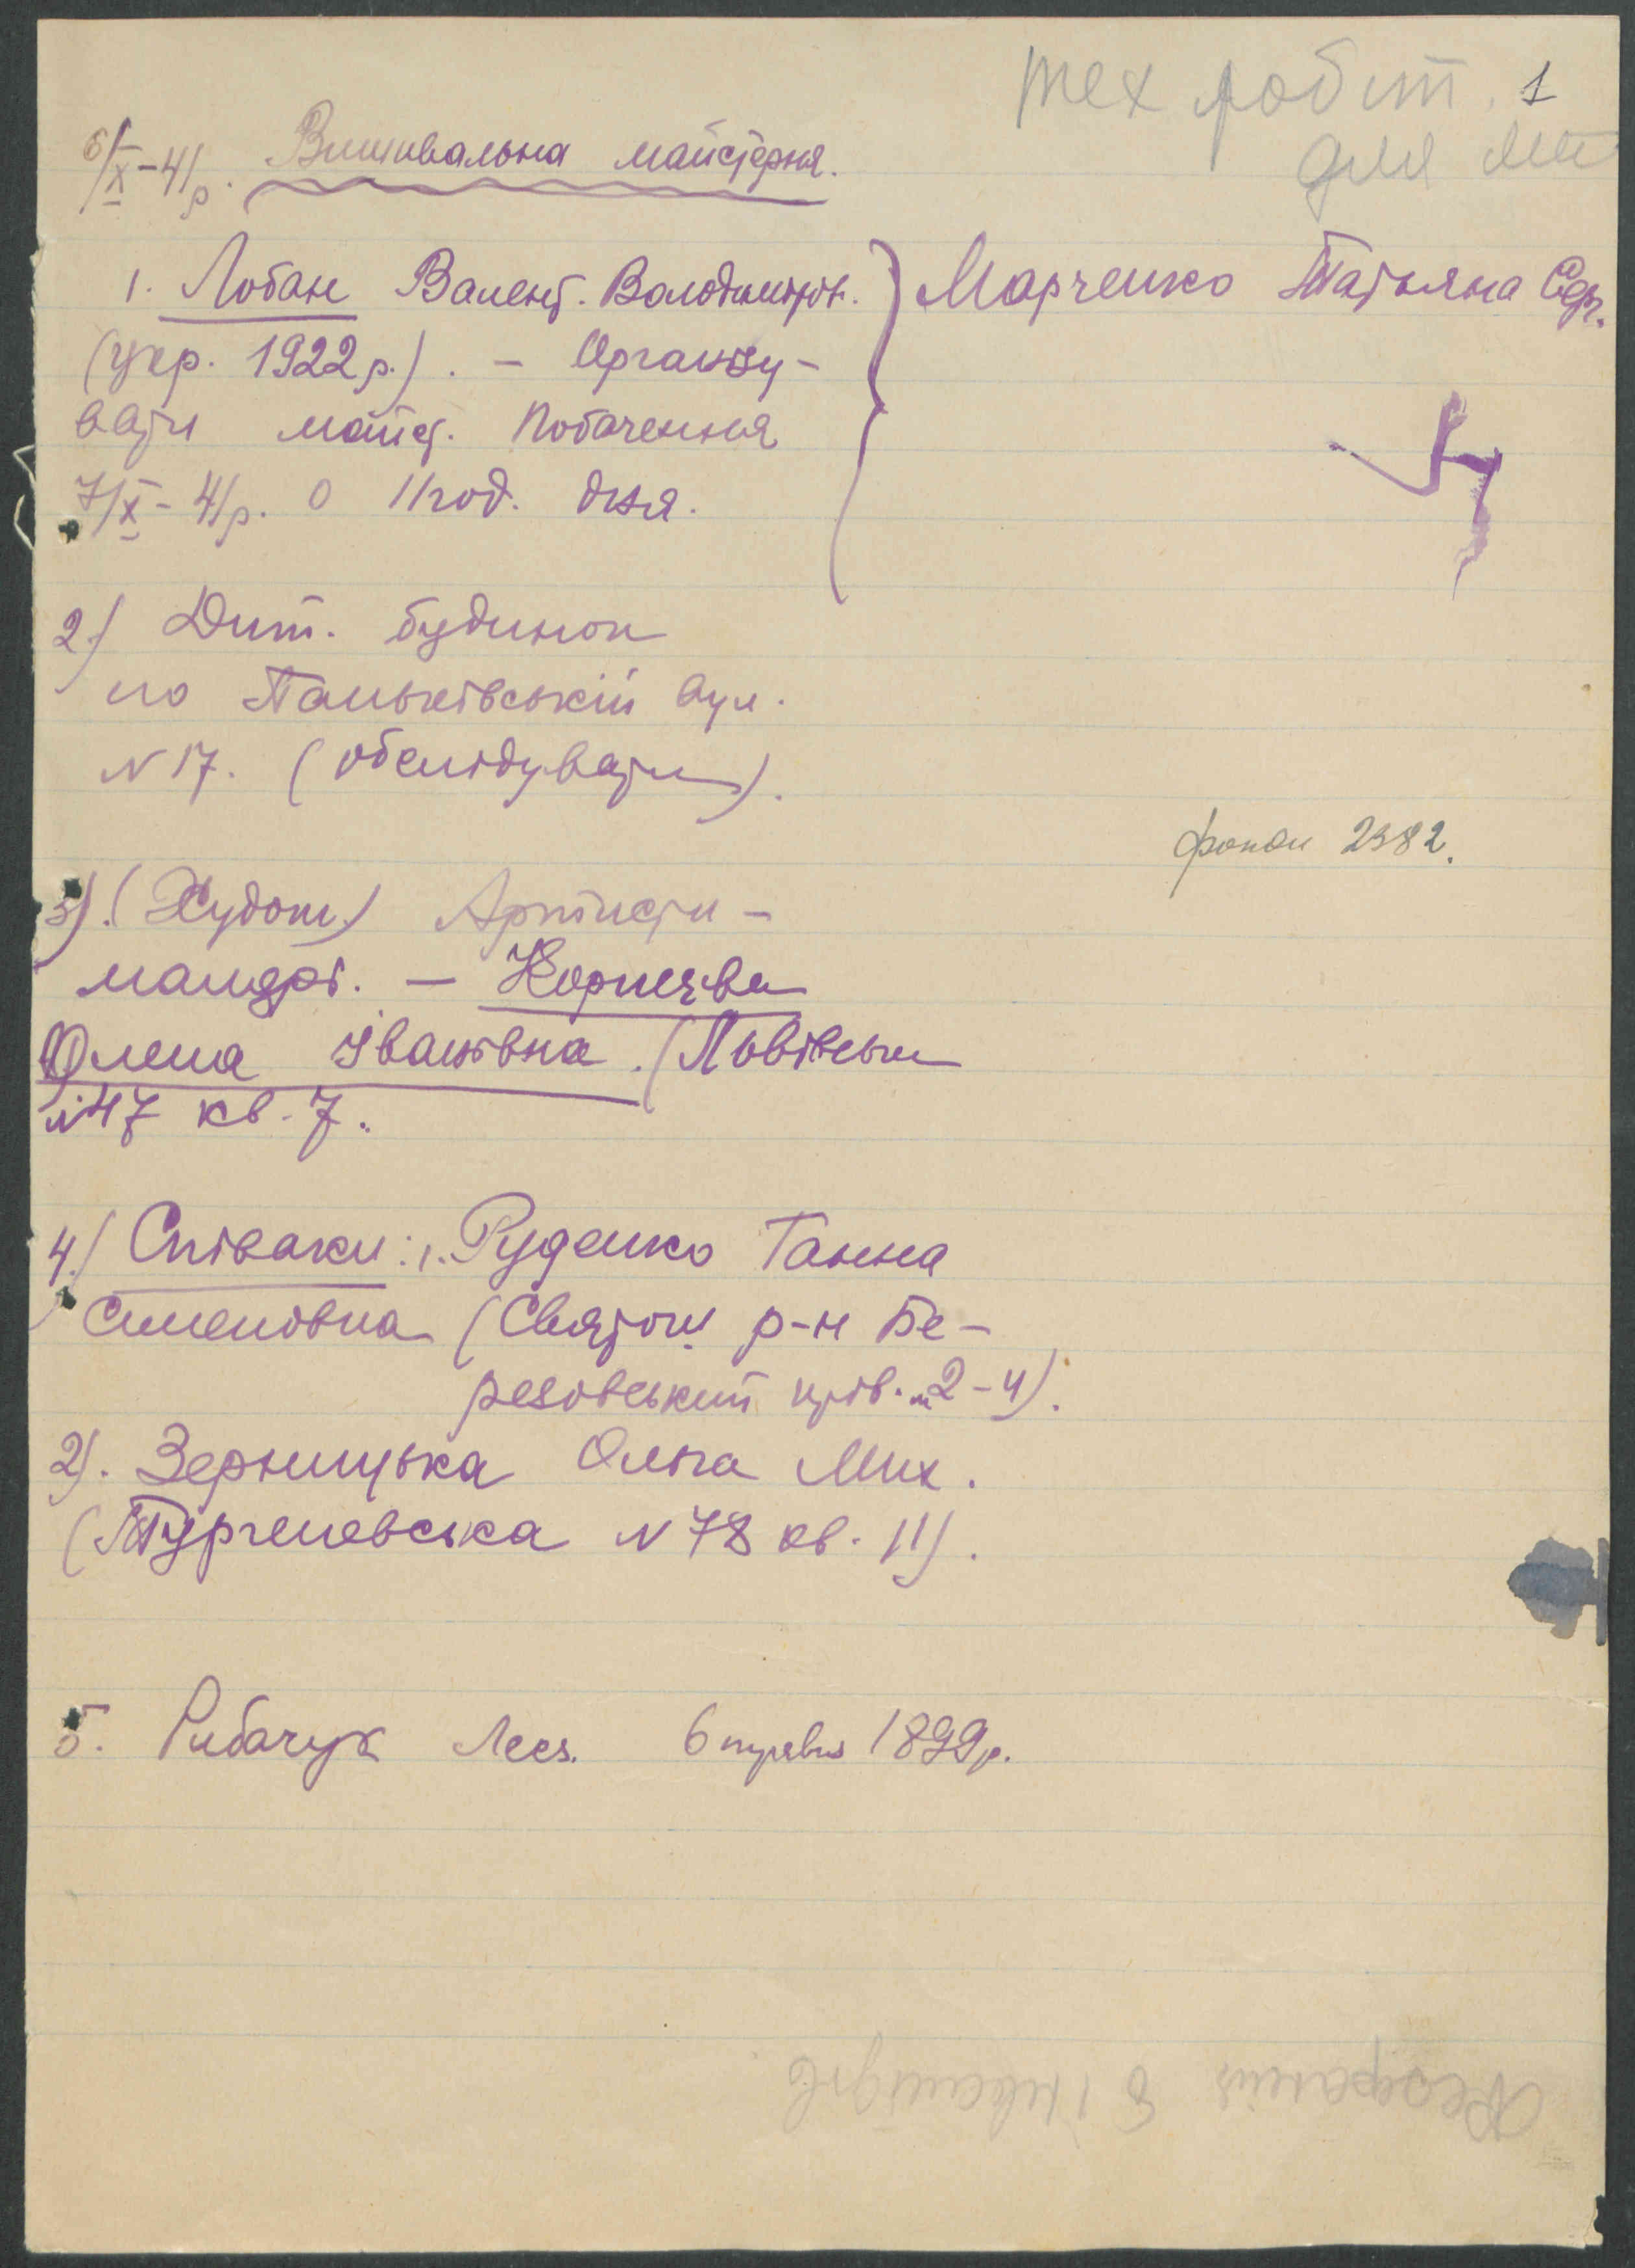 тех робіт. 1
для
6/X-41р. Вишивальна майстерня.
1. Лобан Валент. Володимиров. } Марченко Татьяна Серг.
(укр. 1922 р.). - Організу-
вати майст. Побачення
7/X-41р. о 11 год. дня.
2.) Дит. будинок
по Паньківській вул.
N 17. (обслідувати).
фонди 2382.
3). (Худож.) Артисти -
мандрі. - Корнієва
Олена Іванівна. (Львівськ
N 47 кв. 7.
4.) Співаки: 1. Руденко Ганна
Сименовна (Святош. р-н Бе-
резовський пров. 2-4).
2). Зерницька Ольга Мих.
(Тургеневська N 78 кв. 11).
5. Рибачук Леся. 6 травня 1899р.